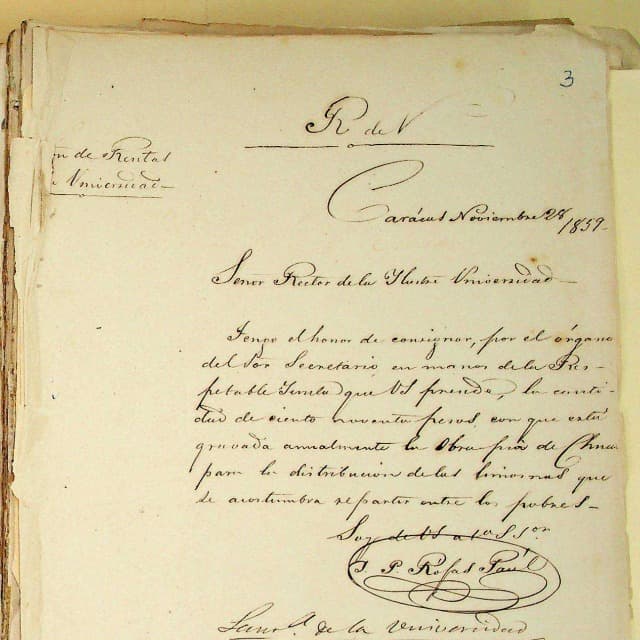 3
R de V
on de Rentas
Universidad
Carácas Noviembre 28/1859
Señor Rector de la Ilustre Universidad
Tengo el honor de consignar, por el órgano
del Sor Secretario, en manos de la Res-
petable Junta que US preside, la canti-
dad de ciento noventa pesos, con que está
gravada anualmente la Obra pia de Chuao
para la distribucion de las limosnas que
se acostumbra repartir entre los pobres-
Soy de US ato S Sor
J. P. Rojas Paúl
de la Universidad